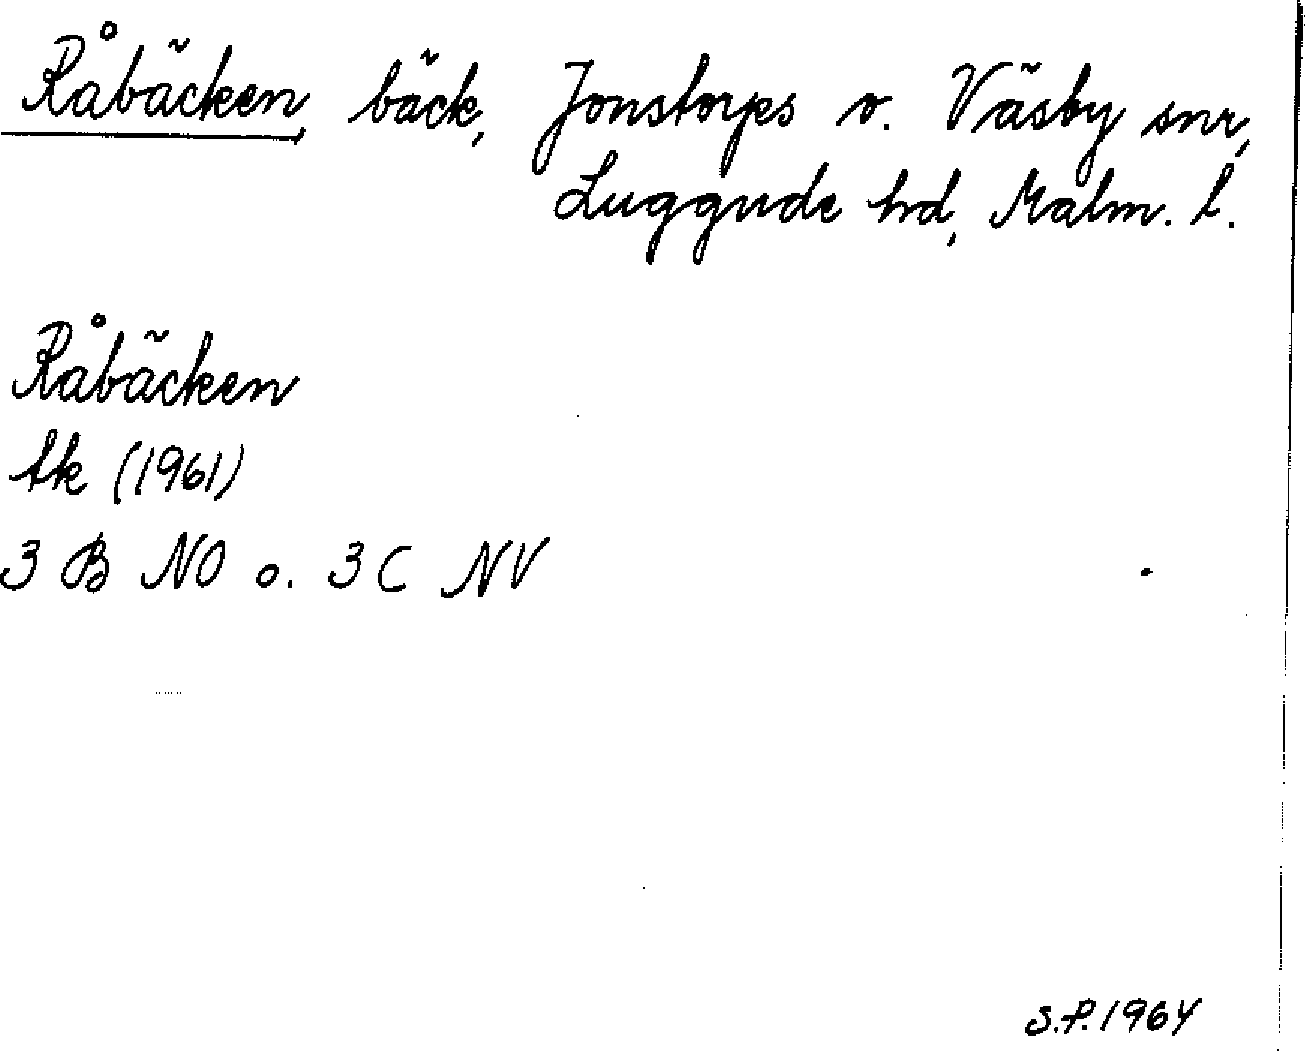 Råbäcken, bäck, Jonstorps o. Väsby snr,
Luggude hd, Malm. l.
Råbäcken
tk (1961)
3 B NO o. 3 C NV
S.P. 1964